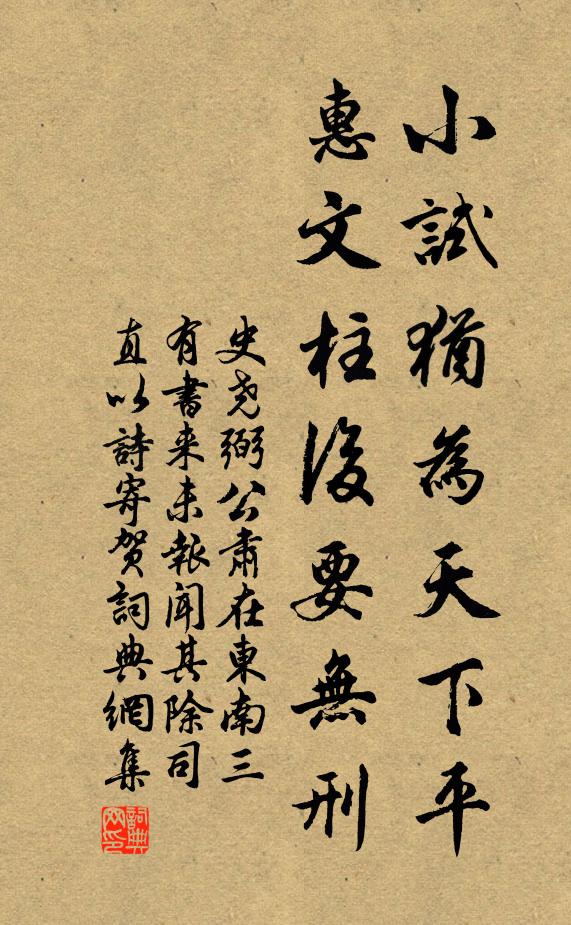 小試猶為天下平
惠文柱後要無刑
史尧弼公肅在東南三
有書来未報闻其除司
直以詩寄贺詞典網集
詞典网印